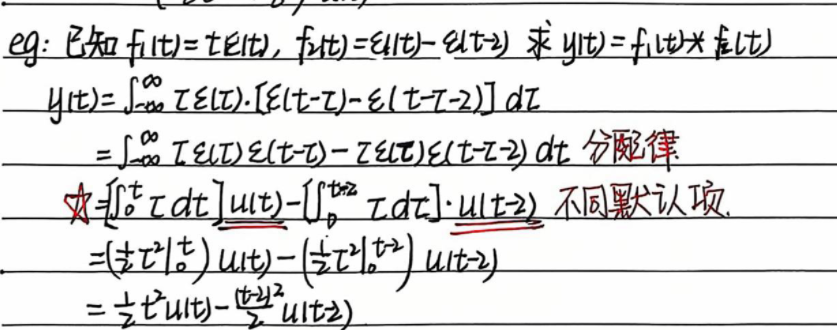 eg: 已知 f₁(t)=tε(t), f₂(t)=ε(t)-ε(t-2) 求 y(t)=f₁(t)*f₂(t)
y(t)=∫_{-∞}^{∞} τε(τ)·[ε(t-τ)-ε(t-τ-2)] dτ
=∫_{-∞}^{∞} τε(τ)ε(t-τ)-τε(τ)ε(t-τ-2) dτ 分配律
☆=[∫₀^t τ dτ]u(t)-[∫₀^{t-2} τ dτ]·u(t-2) 不同默认项.
=(½τ²|₀^t) u(t)-(½τ²|₀^{t-2}) u(t-2)
=½t²u(t)-(t-2)²/2 u(t-2)